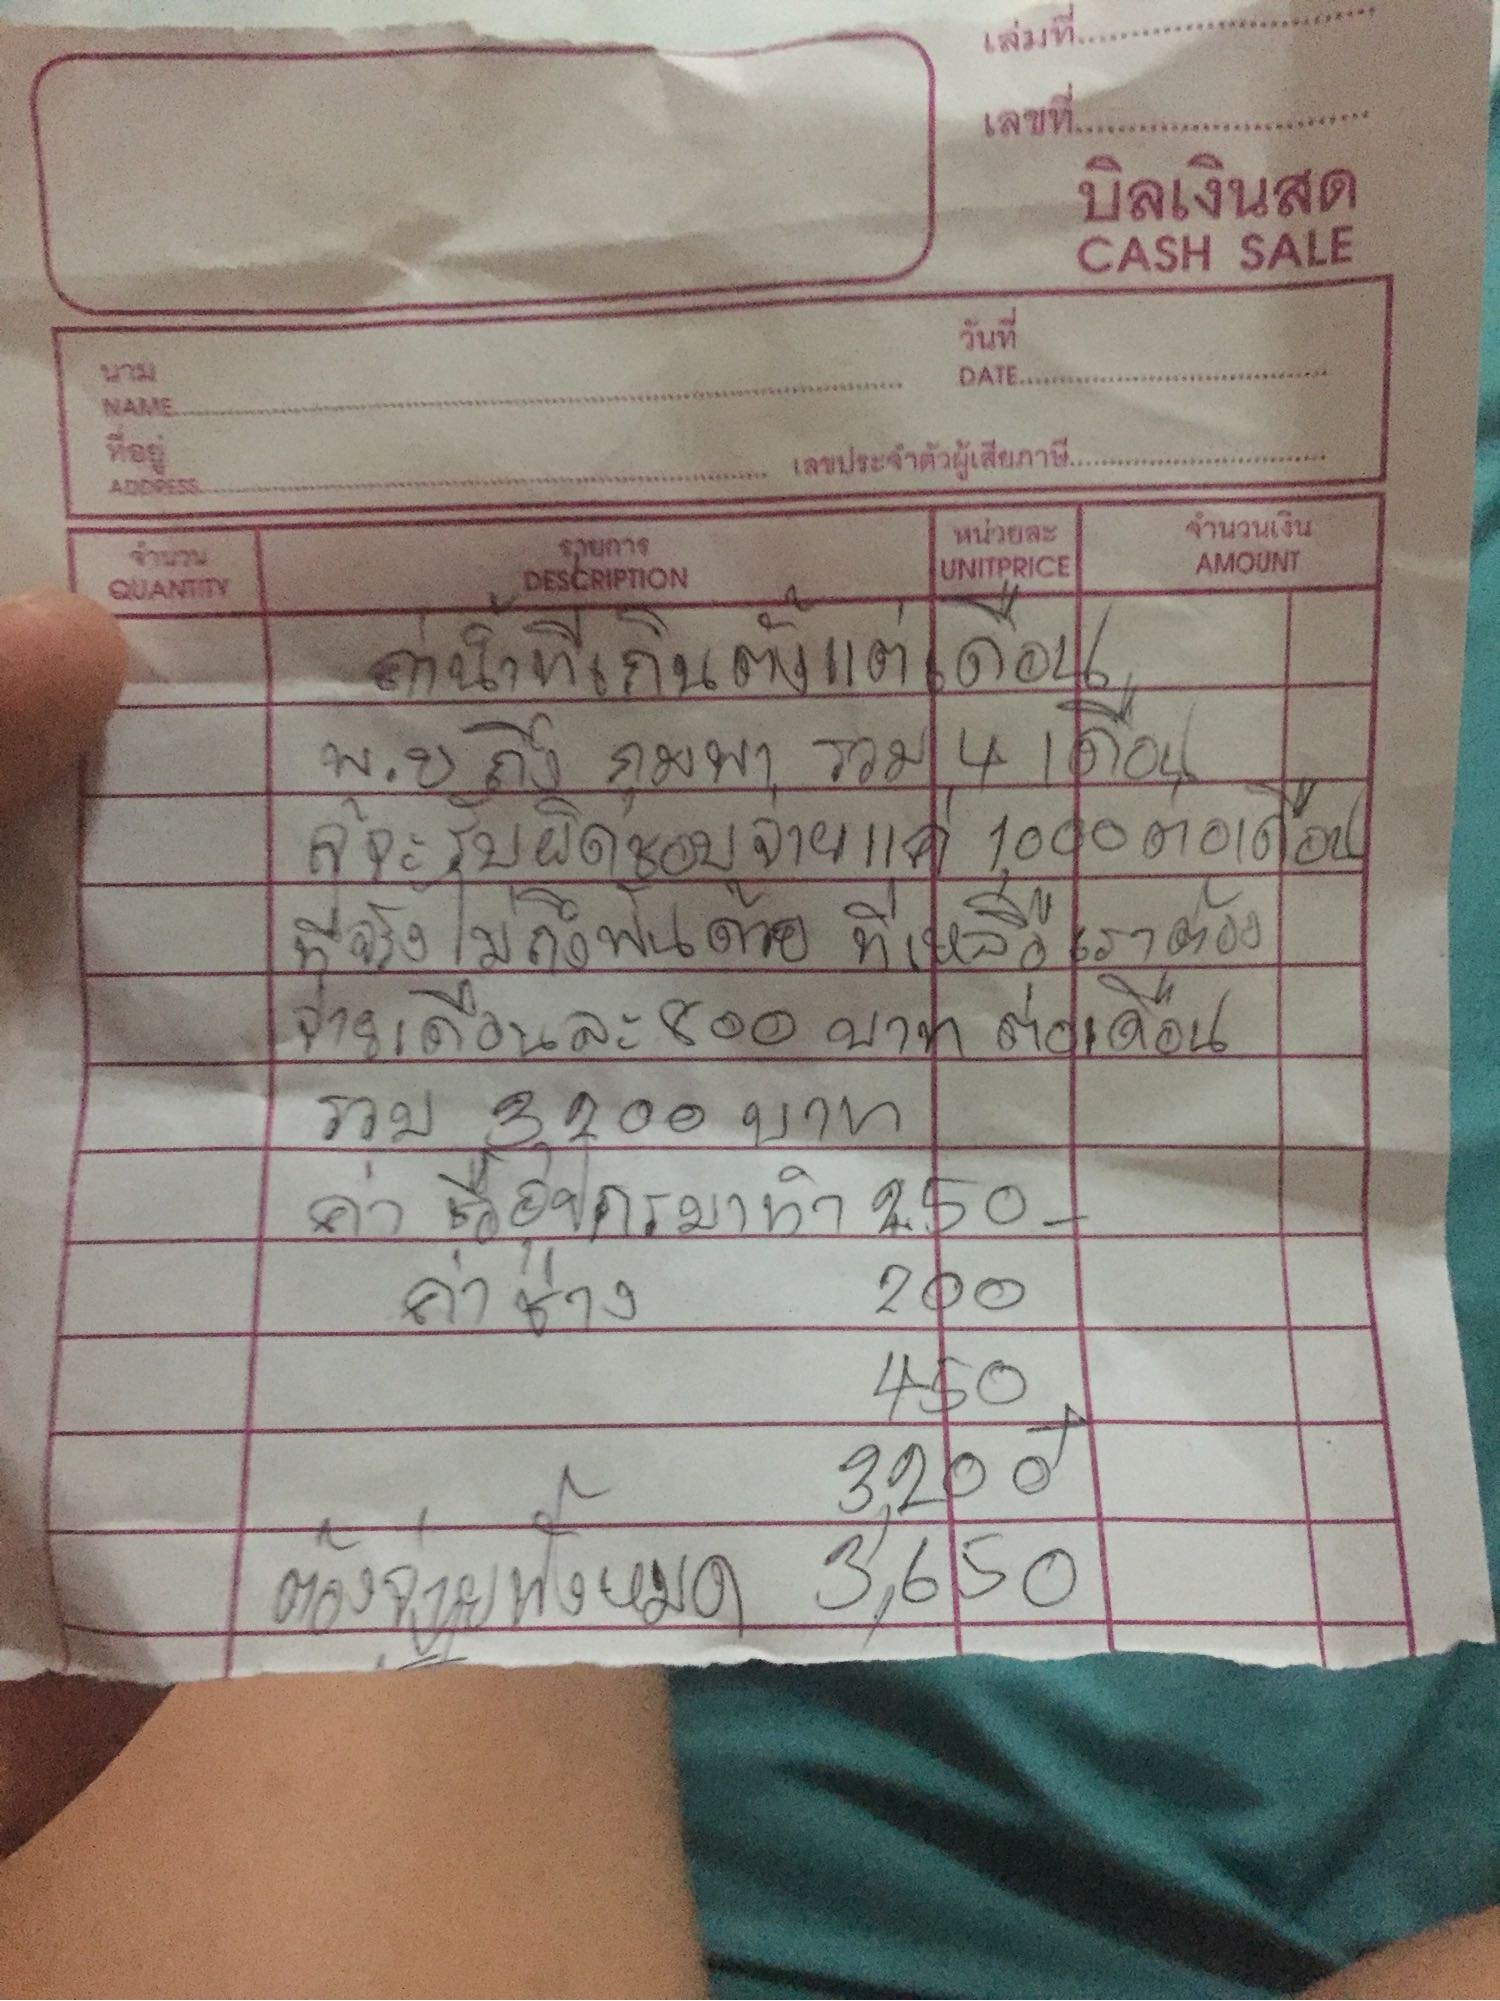 เล่มที่
เลขที่
บิลเงินสด
CASH SALE
นาม
NAME
วันที่
DATE
ที่อยู่
ADDRESS
เลขประจำตัวผู้เสียภาษี
จำนวน รายการ หน่วยละ จำนวนเงิน
QUANTITY DESCRIPTION UNITPRICE AMOUNT
ค่าน้ำที่เกินตั้งแต่เดือน
พ.ย ถึง กุมพา รวม 4 เดือน
จะรับผิดชอบจ่ายแค่ 1,000 ต่อเดือน
ที่จริงไม่ถึงพันด้วย ที่เหลือเราต้อง
จ่ายเดือนละ 800 บาท ต่อเดือน
รวม 3,200 บาท
ค่า ซื้ออุปกรมาทำ 250-
ค่าช่าง 200
450
3,200
ต้องจ่ายทั้งหมด 3,650